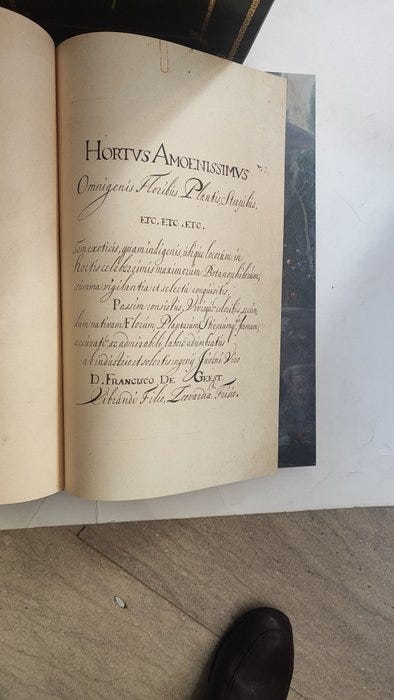 HORTVS AMOENISSIMVS
Omnigenis Floribus Plantis, Stirpibus,
ETC. ETC. ETC.
Tam exoticis, quam indigenis, ubique locorum in
hortis celeberrimis maximorum Botanophilorum,
summa vigilantia et selectu conquisitis,
Passim consistus, Vivisque coloribus
nativam Florum, Plantarum Stirpiumque formam,
accurato ac admirabili labore
ab industrio et Viro
D. FRANCISCO DE GEEST.
Vibrandi Filio, Leovardia Frisio.